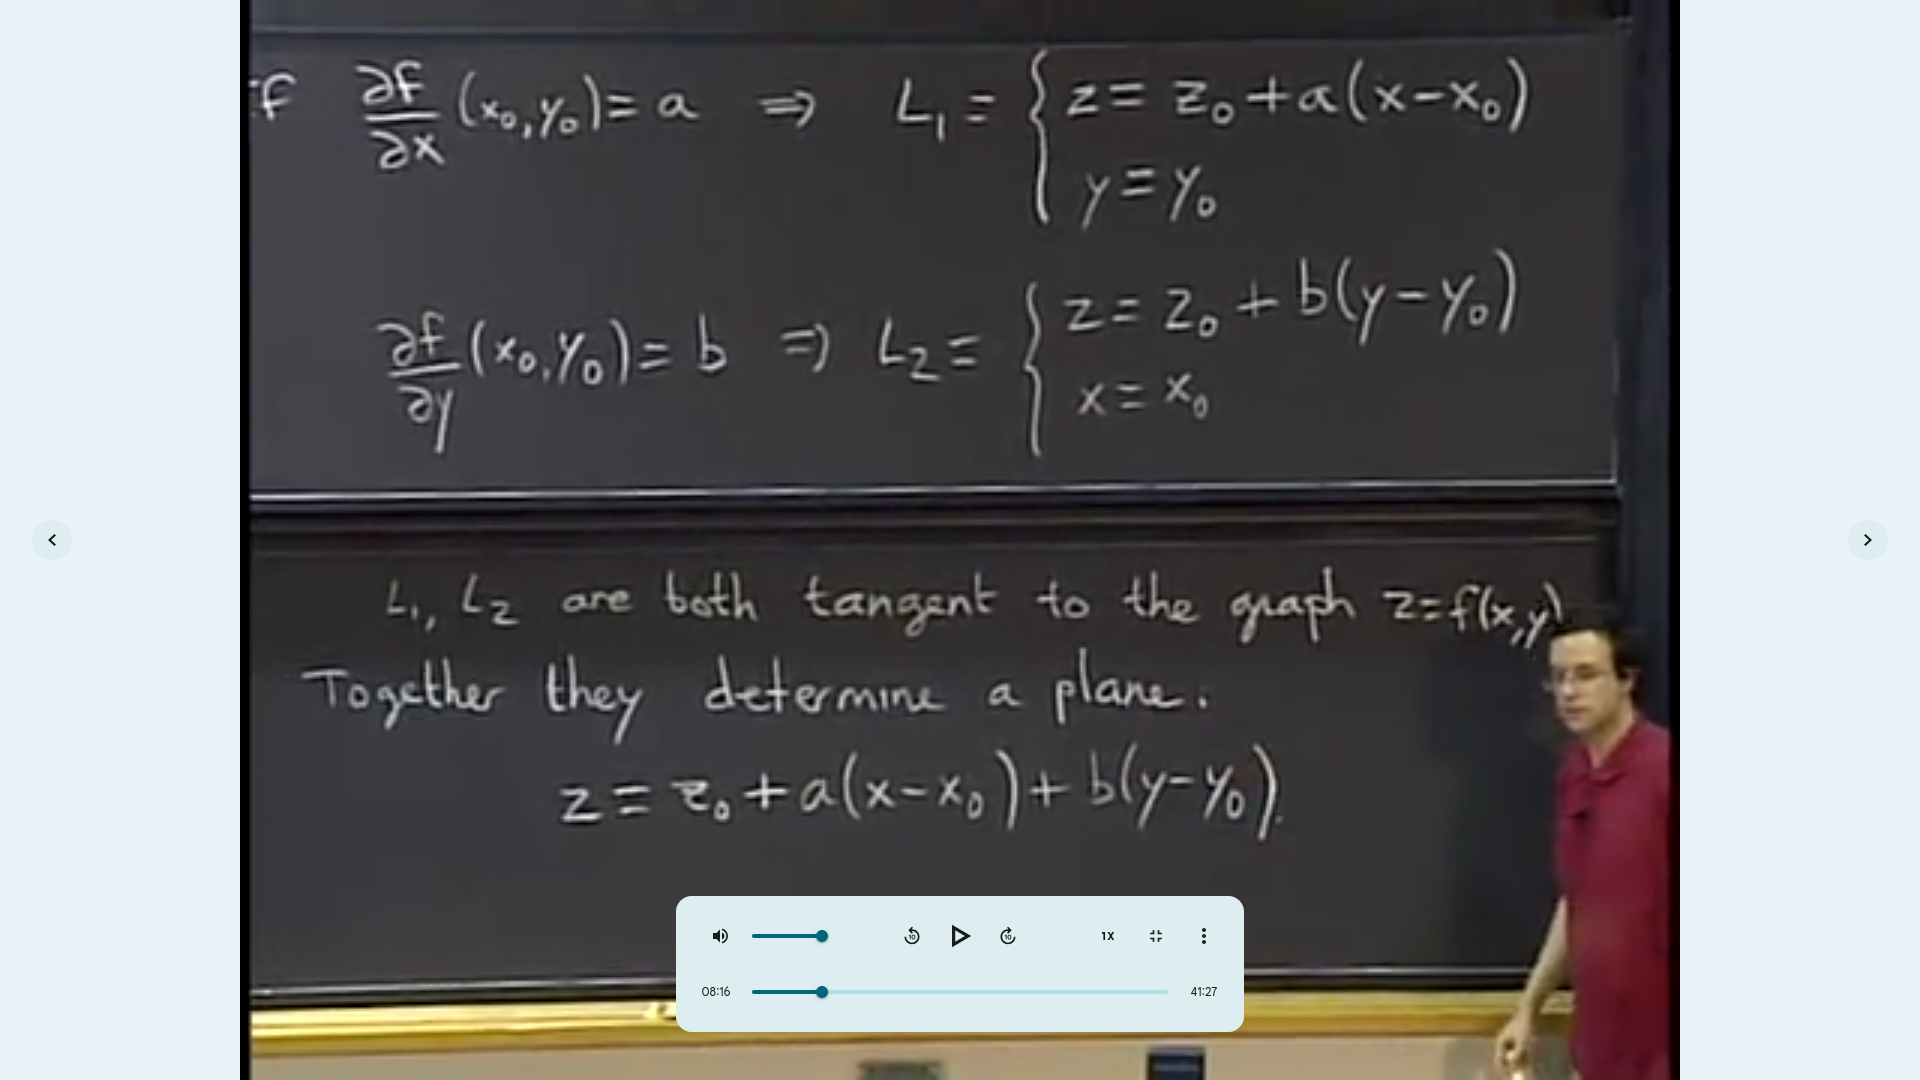 If ∂f/∂x (x₀,y₀) = a ⇒ L₁ = { z = z₀ + a(x-x₀)
y = y₀
∂f/∂y (x₀,y₀) = b ⇒ L₂ = { z = z₀ + b(y-y₀)
x = x₀
L₁, L₂ are both tangent to the graph z=f(x,y)
Together they determine a plane.
z = z₀ + a(x-x₀) + b(y-y₀).
10 10 1X
08:16 41:27